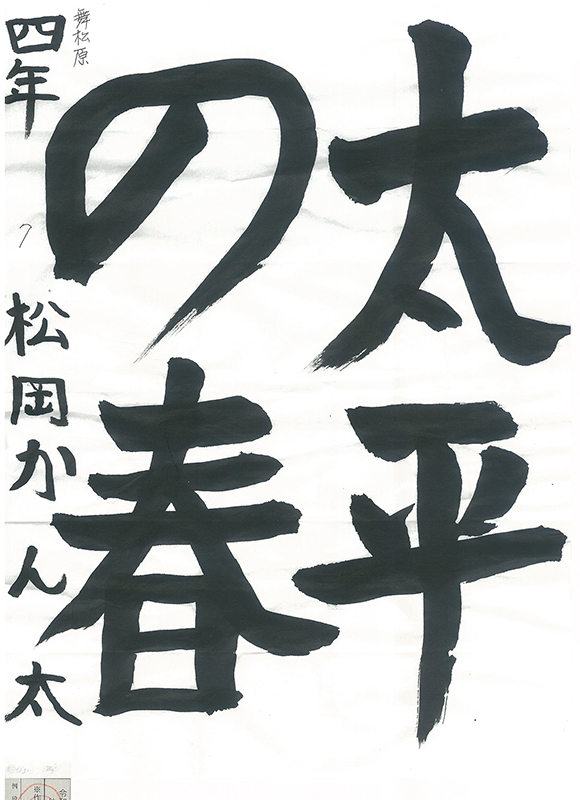 太平
の春
舞松原
四年
松岡かん太